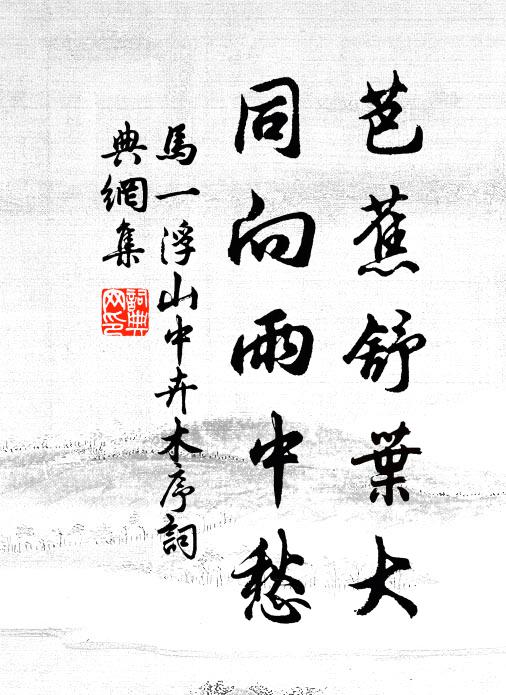 芭蕉舒葉大
同向雨中愁
馬一浮山中卉木序詞
典網集
詞典
网印